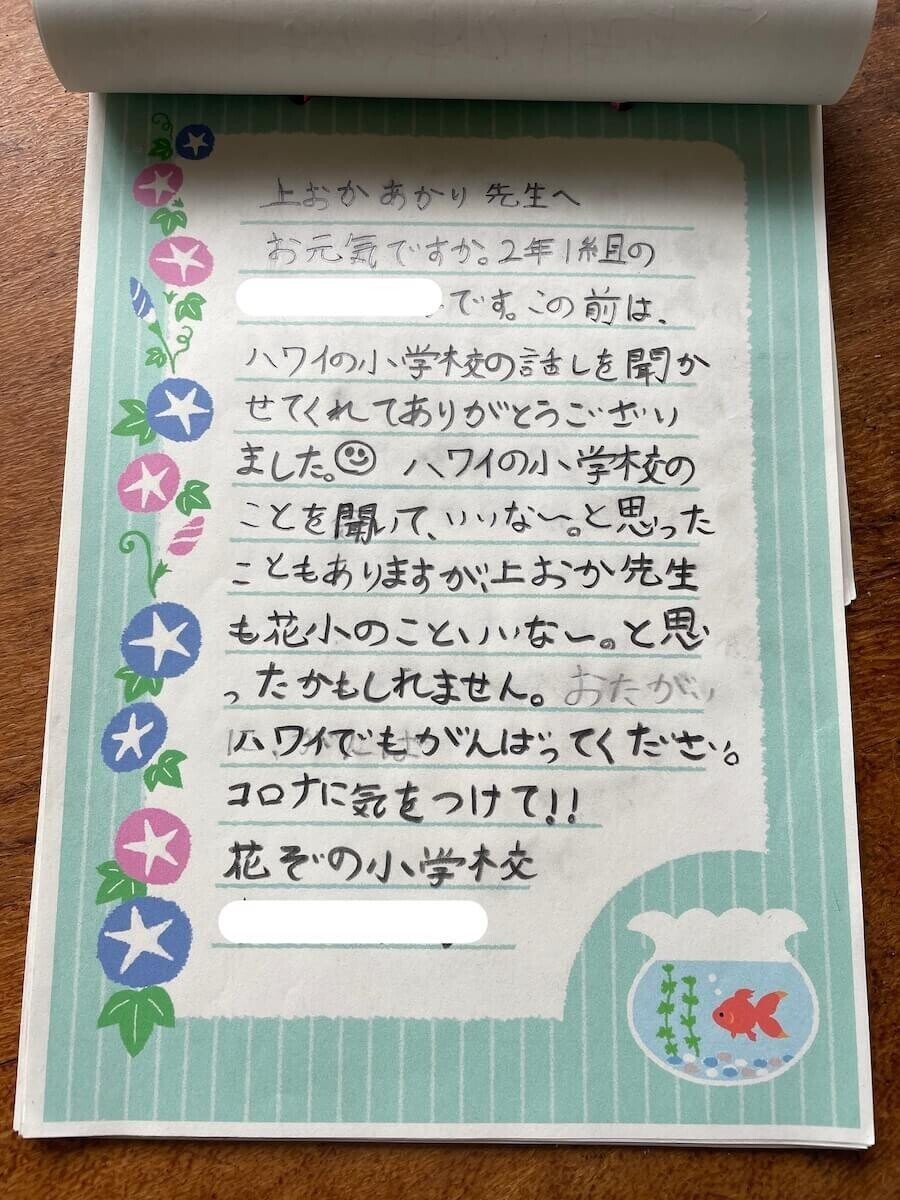 上おかあかり先生へ
お元気ですか。2年1組の
です。この前は、
ハワイの小学校の話しを聞か
せてくれてありがとうござい
ました。☺ ハワイの小学校の
ことを聞いて、いいな〜。と思った
こともありますが、上おか先生
も花小のこといいな〜。と思
ったかもしれません。おたがい
ハワイでもがんばってください。
コロナに気をつけて!!
花ぞの小学校